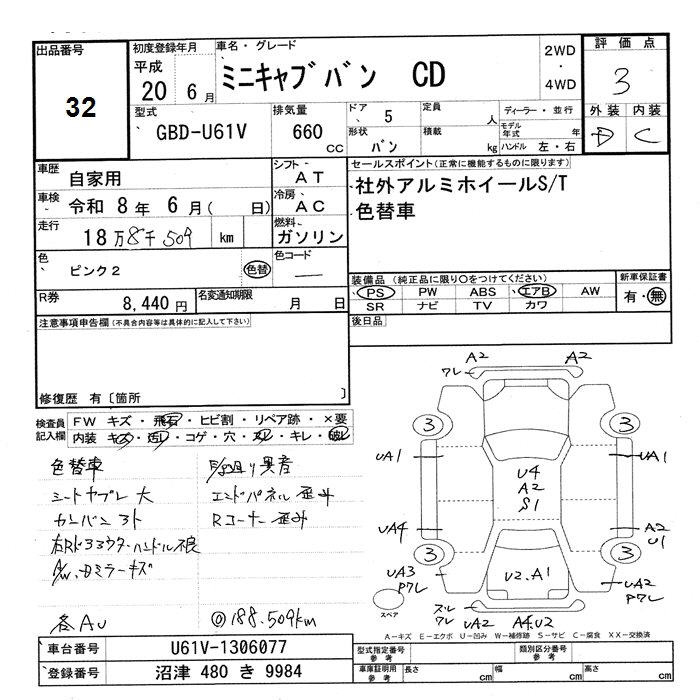 出品番号
32
初度登録年月
平成
20 6月
車名・グレード
ミニキャブバン CD
2WD
・
4WD
評価点
3
外装 内装
D C
型式
GBD-U61V
排気量
660 CC
ドア
5
形状
バン
定員
人
積載
kg
ディーラー・並行
モデル年式 年
ハンドル 左・右
車歴
自家用
シフト
AT
車検
令和 8年 6月( 日)
冷房
AC
走行
18万8千509 km
燃料
ガソリン
色
ピンク2 色替
色コード
R券
8,440円
名変通知期限
月 日
セールスポイント(正常に機能するものに限ります)
社外アルミホイールS/T
色替車
装備品(純正品に限り○をつけてください)
PS PW ABS エアB AW
SR ナビ TV カワ
新車保証書
有・無
後日品
注意事項申告欄(不具合内容等は具体的に記入して下さい)
修復歴 有〔箇所 〕
検査員記入欄
FW キズ・飛石・ヒビ割・リペア跡・×要
内装 キズ・汚レ・コゲ・穴・スレ・キレ・破レ
色替車
シートヤブレ 大
カンバン 3ト
ハンドル不良
ミラーキズ
各AU
異音
エンドパネル 歪み
Rコーナー 歪み
◎188.509km
A2 A2
ワレ
3 3
UA1 UA1
U4
A2
S1
UA4 A2
U1
3 3
UA3
Pワレ
U2.A1
UA2
Pワレ
スレ
ワレ
UA2 A4.U2
スペア
A-キズ E-エクボ U-凹み W-補修跡 S-サビ C-腐食 XX-交換済
車台番号 U61V-1306077
登録番号 沼津 480 き 9984
型式指定番号
参考
類別区分番号
参考
車庫証明用
参考
長さ cm 幅 cm 高さ cm